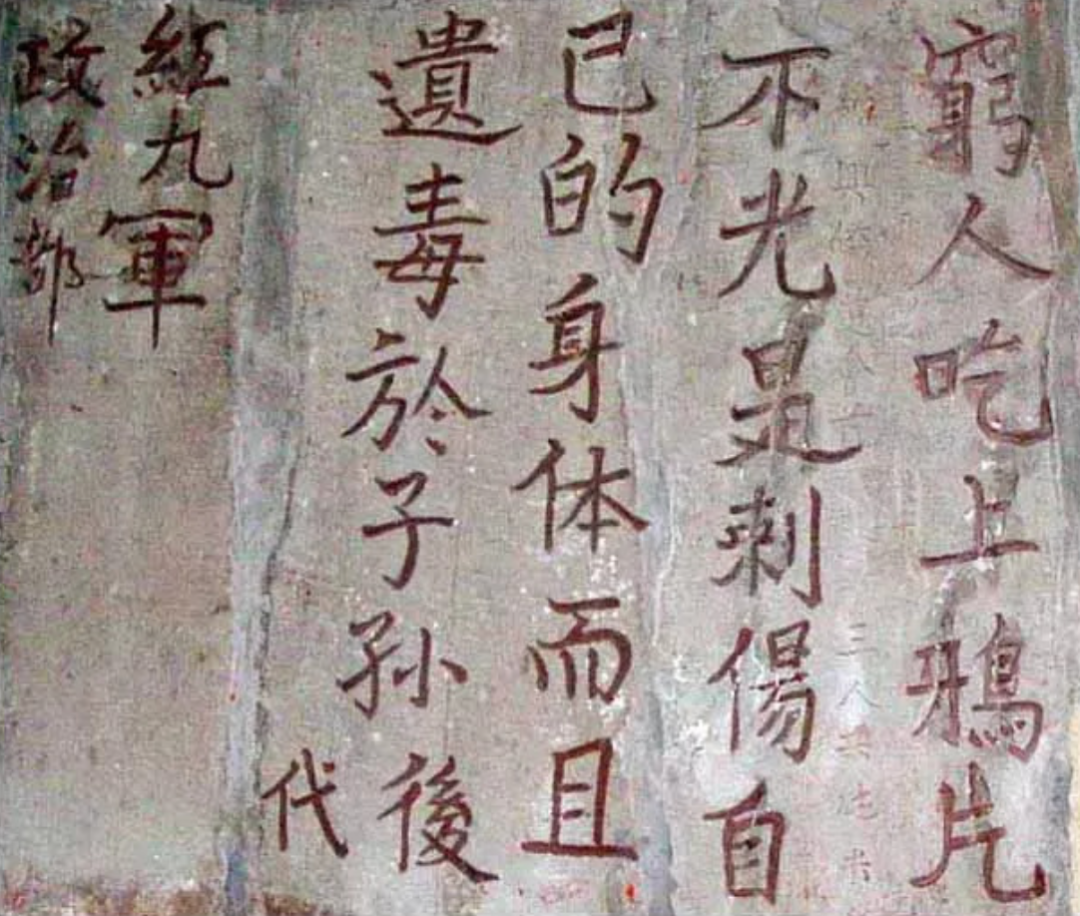 窮人吃上鴉片
不光是刺傷自
己的身体而且
遺毒於子孫後
代
紅九軍
政治部